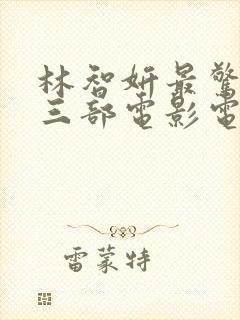 林智妍最驚
三部電影電
雷蒙特